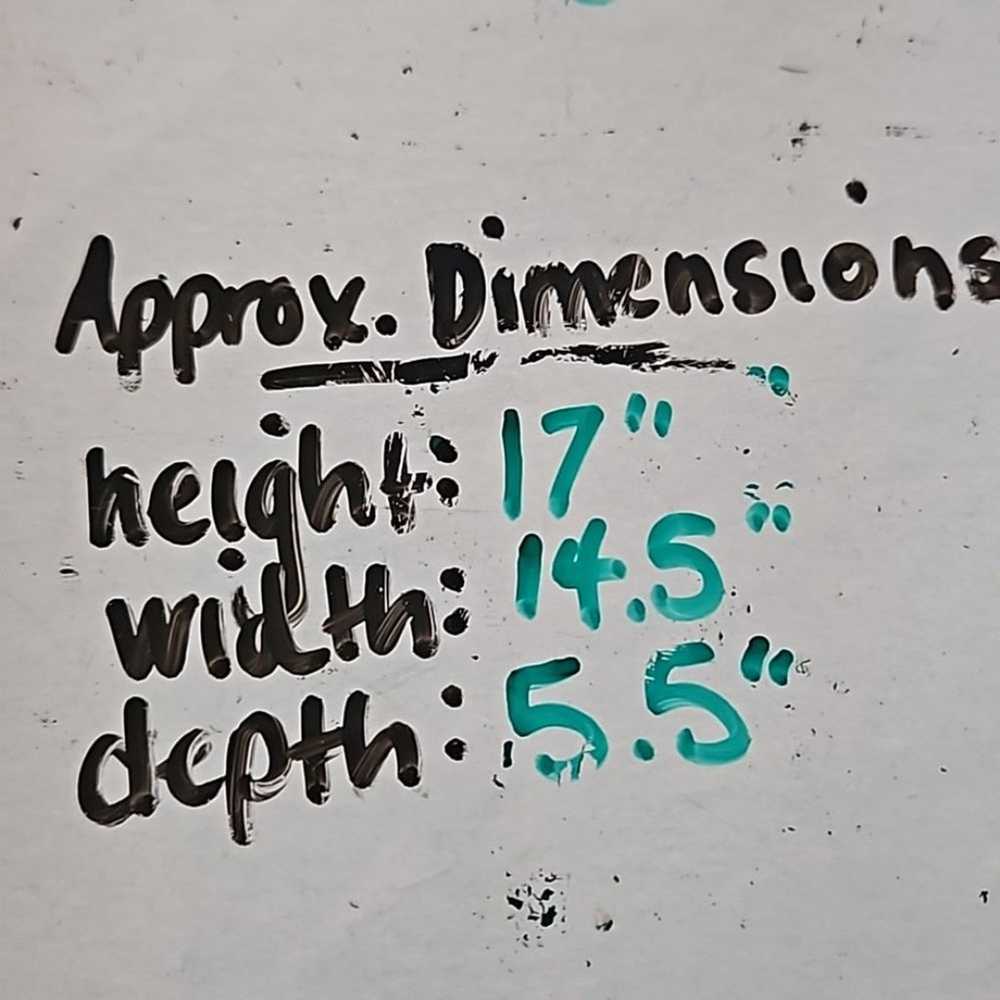 Approx. Dimensions
height: 17"
width: 14.5"
depth: 5.5"